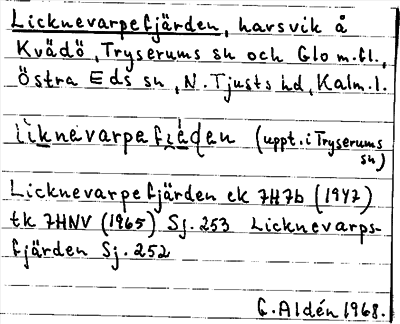 Licknevarpefjärden, havsvik å
Kvädö, Tryserums sn och Glo m.fl.,
Östra Eds sn, N. Tjusts hd, Kalm.l.
līknevarpefjęden (uppt. i Tryserums
sn)
Licknevarpefjärden ek 7H7b (1947)
tk 7HNV (1965) Sj. 253 Licknevarps-
fjärden Sj. 252
G. Aldén 1968.